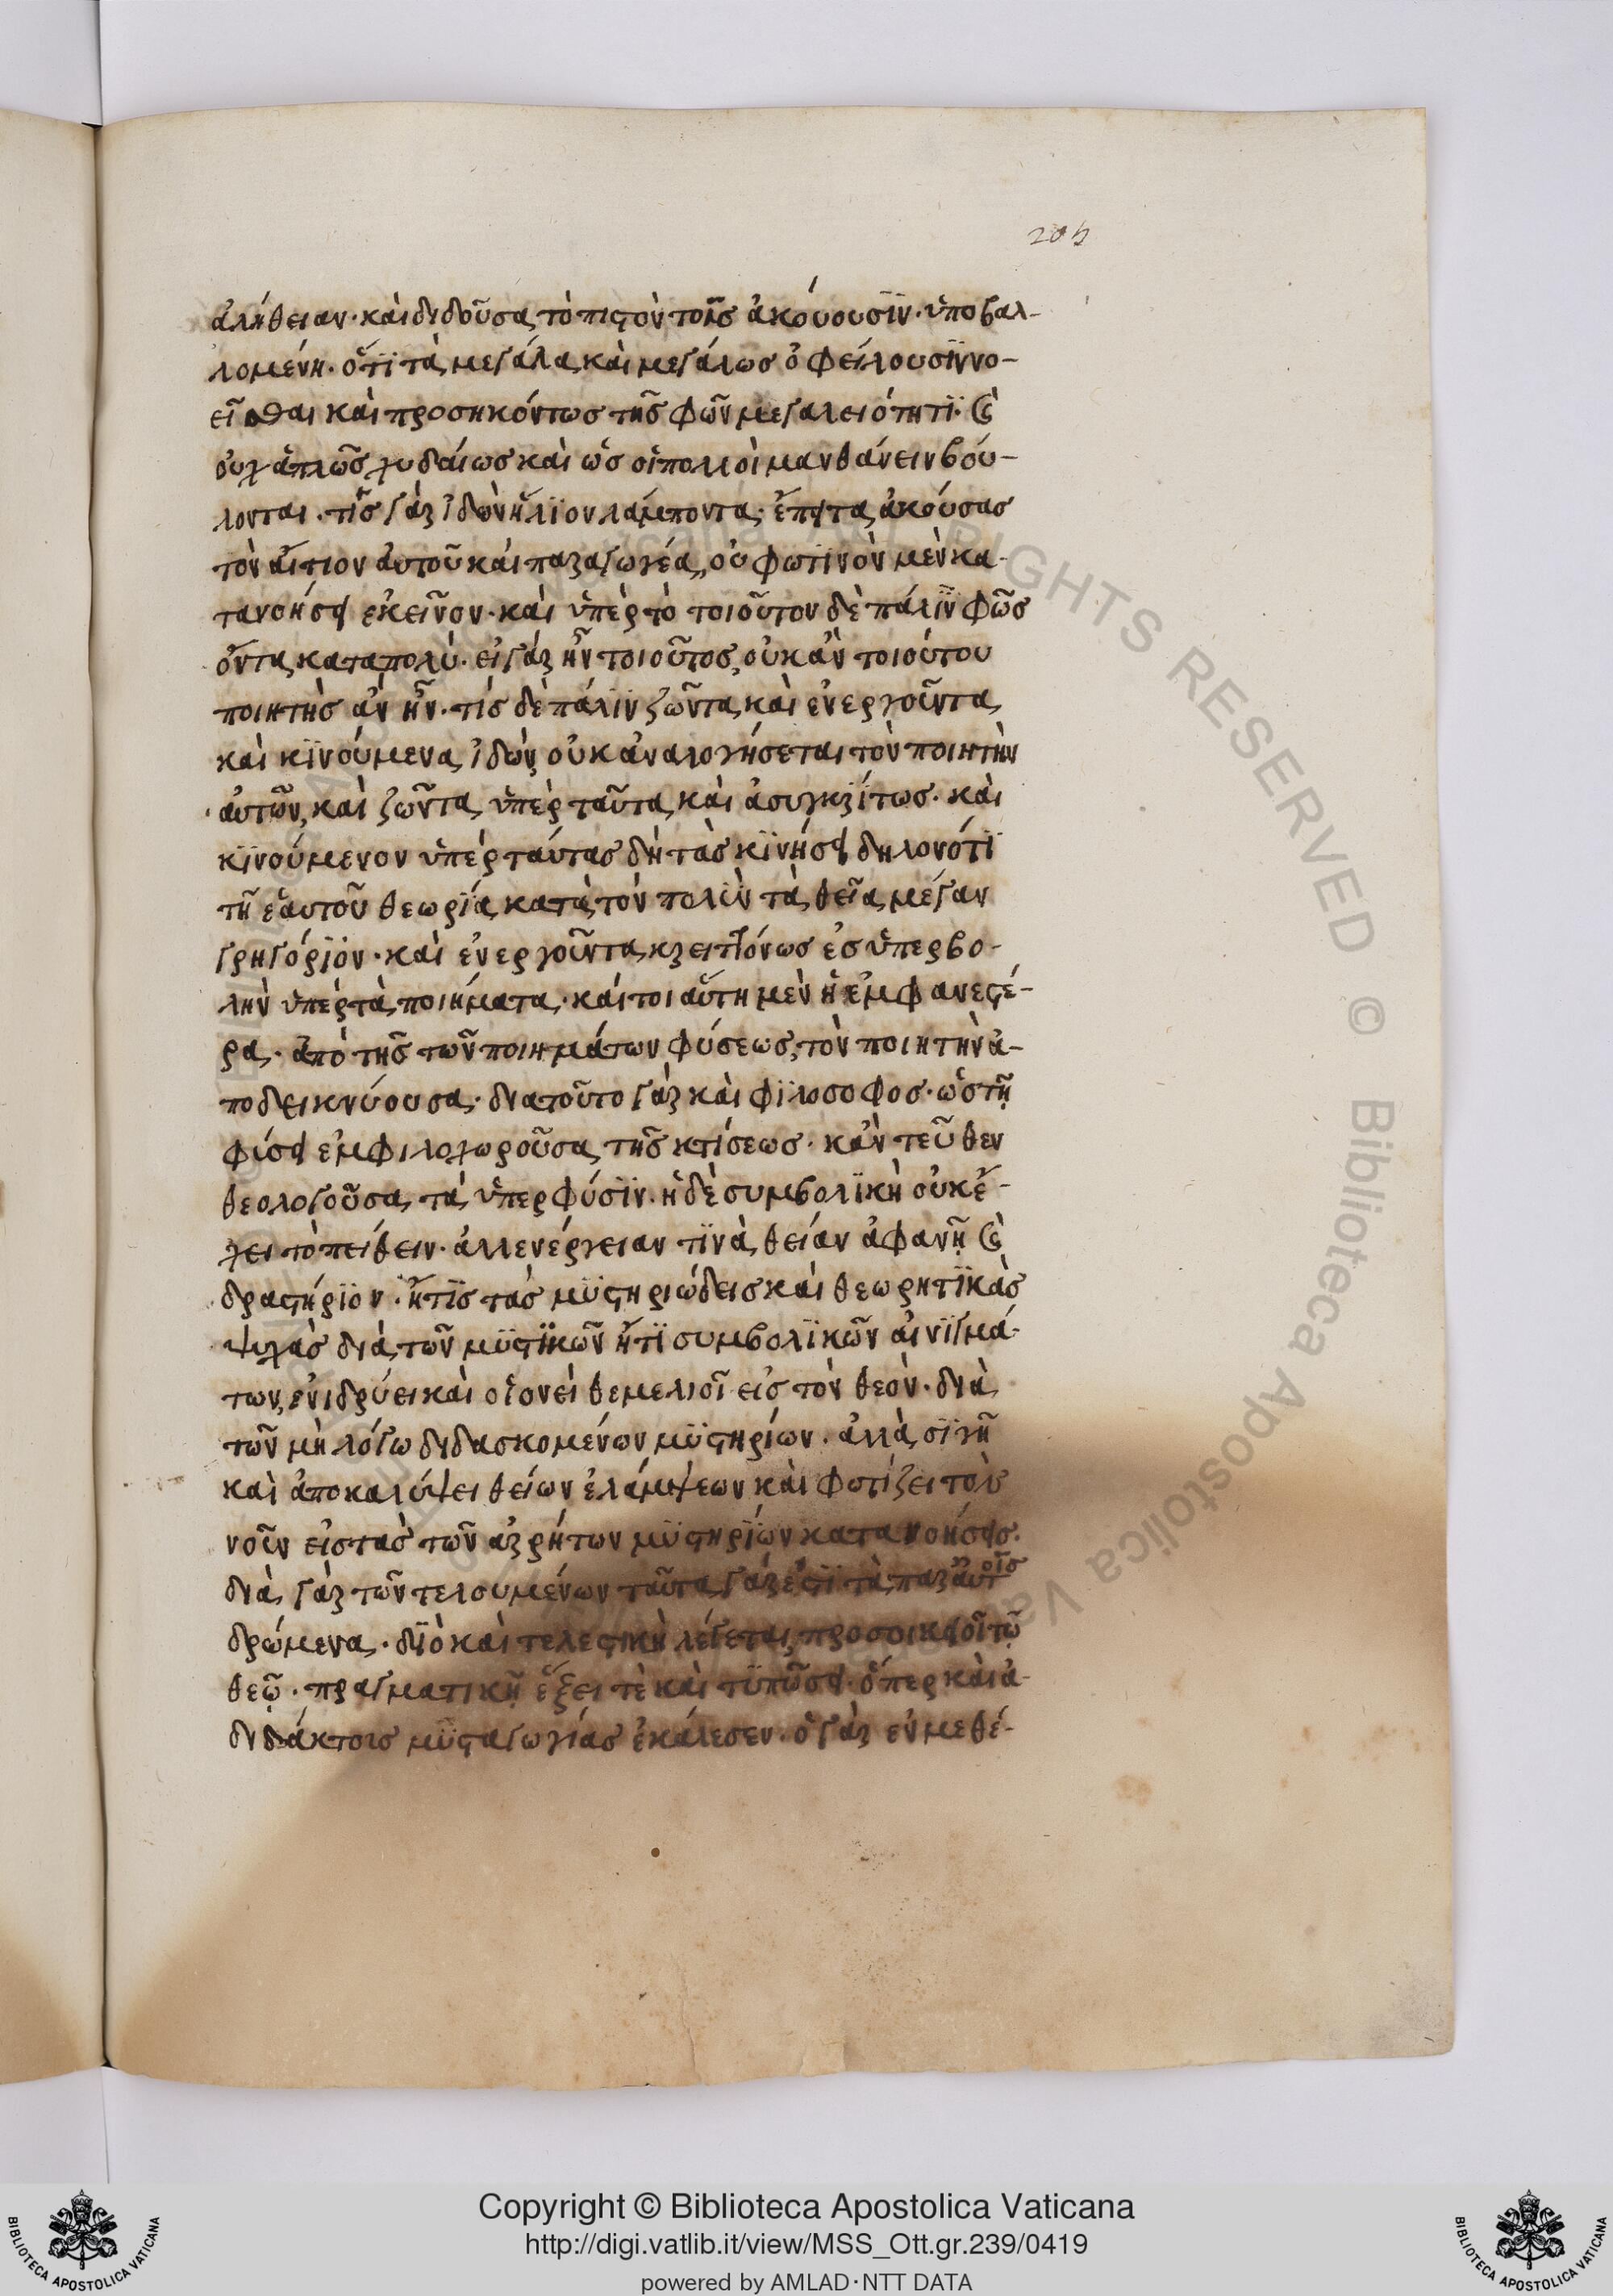 205
ἀλήθειαν· καὶ διδοῦσα τὸ πιστὸν τοῖς ἀκούουσϊν· ὑποβαλ-
λομένη· ὅτϊ τὰ μεγάλα καὶ μεγάλως ὀφείλουσϊν νο-
εῖσθαι καὶ προσηκόντως τῆς φῶν μεγαλειότητϊ· καὶ
οὐχ ἁπλῶς χυδαίως καὶ ὡς οἱ πολλοὶ μανθάνειν βού-
λονται· τίς γὰρ ἰδὼν ἥλϊον λάμποντα· ἔπειτα ἀκούσας
τὸν αἴτιον αὐτοῦ καὶ παραγωγέα, οὐ φωτϊνὸν μὲν κα-
τανοήσει ἐκεῖνον· καὶ ὑπὲρ τὸ τοιοῦτον δὲ πάλϊν φῶς
ὄντα καταπολύ· εἰ γὰρ ἦν τοιοῦτος, οὐκ ἂν τοιούτου
ποιητὴς ἂν ἦν· τίς δὲ πάλϊν ζῶντα καὶ ἐνεργοῦντα
καὶ κϊνούμενα ἰδὼν οὐκ ἀναλογήσεται τὸν ποιητὴν
αὐτῶν, καὶ ζῶντα ὑπὲρ ταῦτα καὶ ἀσυγκρίτως· καὶ
κϊνούμενον ὑπὲρ ταύτας δὴ τὰς κϊνήσει δηλονότϊ
τῇ ἑαυτοῦ θεωρϊία κατὰ τὸν πολὺν τὰ θεῖα μέγαν
γρηγόρϊον· καὶ ἐνεργοῦντα κρειττόνως ἐς ὑπερβο-
λὴν ὑπὲρ τὰ ποιήματα· καίτοι αὕτη μὲν ἡ ἐμφανεστέ-
ρα· ἀπὸ τῆς τῶν ποιημάτων φύσεως, τὸν ποιητὴν ἀ-
ποδεικνύουσα· διατοῦτο γὰρ καὶ φϊλοσοφος· ὡς τῇ
φύσει ἐμφιλοχωροῦσα τῆς κτίσεως· κἀντεῦθεν
θεολογοῦσα τὰ ὑπερ φύσϊν· ἡ δὲ συμβολϊκὴ οὐκ ἔ-
χει τὸ πείθειν· ἀλλενέργειαν τϊνὰ θείαν ἀφανῆ καὶ
δραστήρϊον· ἥτϊς τὰς μϋστηριώδεις καὶ θεωρητϊκὰς
ψυχὰς διὰ τῶν μϋστϊκῶν ἤτϊ συμβολϊκῶν αἰνϊγμά-
των, ἐνιδρύει καὶ οἱονεὶ θεμελιοῖ εἰς τὸν θεὸν· διὰ
τῶν μὴ λόγω διδασκομένων μϋστηρίων· ἀλλὰ σϊγῆ
καὶ ἀποκαλύψει θείων ἐλάμψεων καὶ φοτίζει τὸν
νοῦν εἰς τὰς τῶν ἀρρήτων μϋστηρϊίων κατανοήσεις·
διὰ γὰρ τῶν τελουμένων ταῦτα γὰρ ἐστϊ τὰ παρ αὐτοῖς
δρώμενα· διὸ καὶ τελεστικὴ λέγεται, προσοικειοῖ τῷ
θεῷ· πραγματικῇ ἕξει τὲ καὶ τϋπῶσει· ὅπερ καὶ ἀ-
διδάκτοις μϋσταγωγίας ἐκάλεσεν· ὁ γὰρ ἐν μεθέ-
Copyright © Biblioteca Apostolica Vaticana
http://digi.vatlib.it/view/MSS_Ott.gr.239/0419
powered by AMLAD·NTT DATA